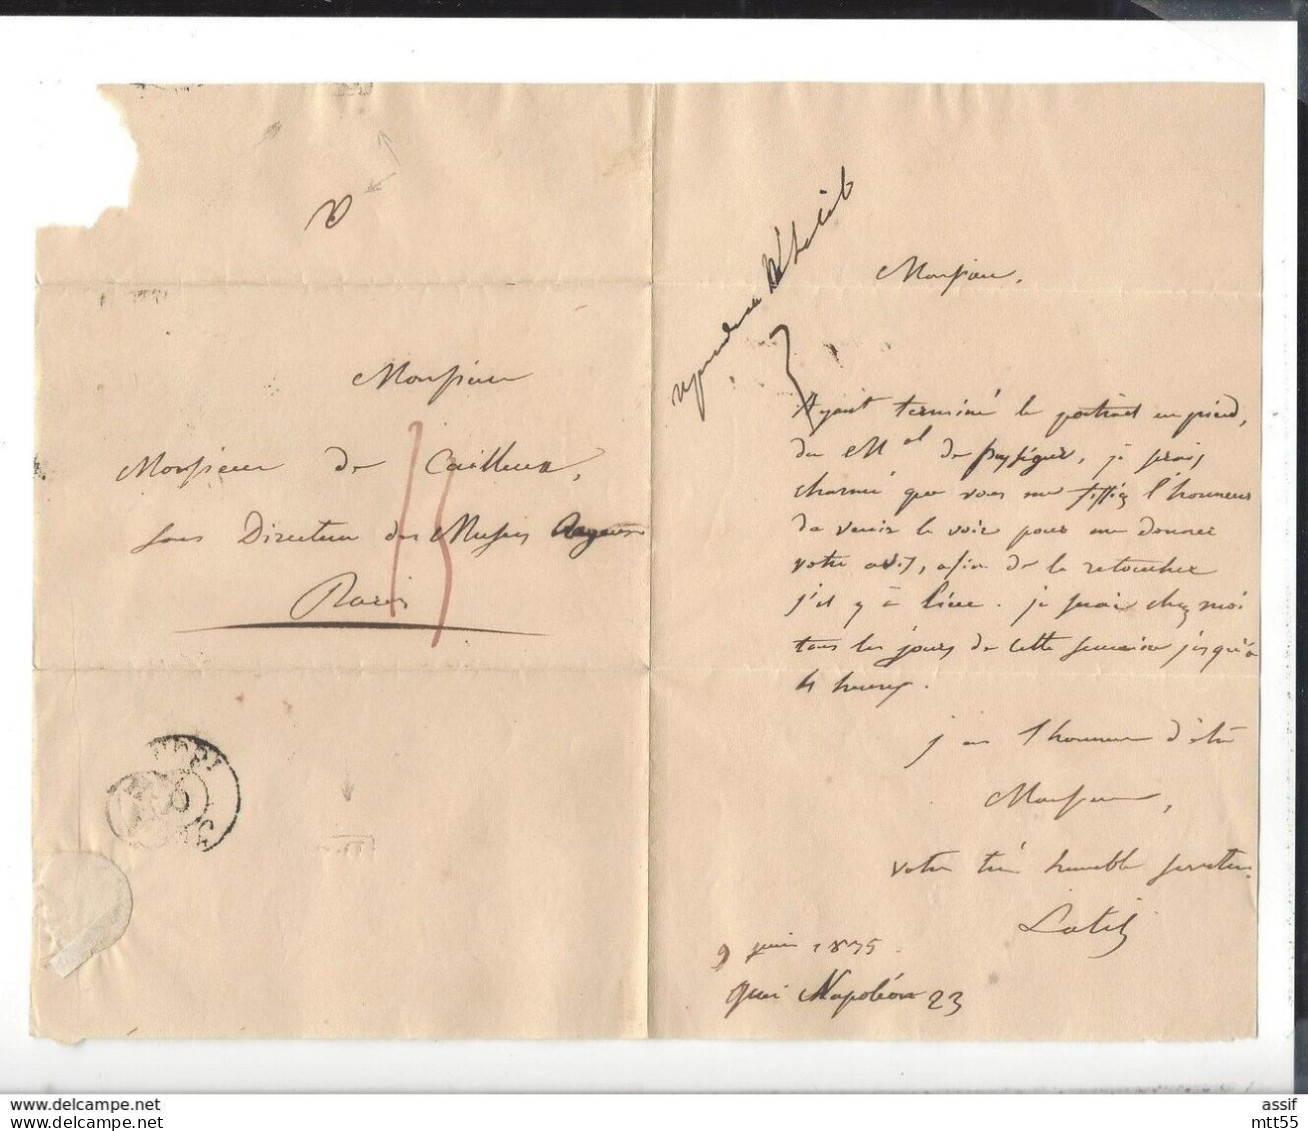 Monsieur
Monsieur de Cailleux,
sous Directeur des Musées Royaux
Paris
15
Monsieur.
Ayant terminé le portrait en pied,
du Mal de Puységur, je serais
charmé que vous me fissiez l'honneur
de venir le voir pour me donner
votre avis, afin de le retoucher
s'il y a lieu. je serai chez moi
tous les jours de cette semaine jusqu'à
4 heures.
j'ai l'honneur d'être
Monsieur,
votre très humble serviteur
Latil
9 juin 1835.
quai Napoléon 23
www.delcampe.net
www.delcampe.net
assif
mtt55